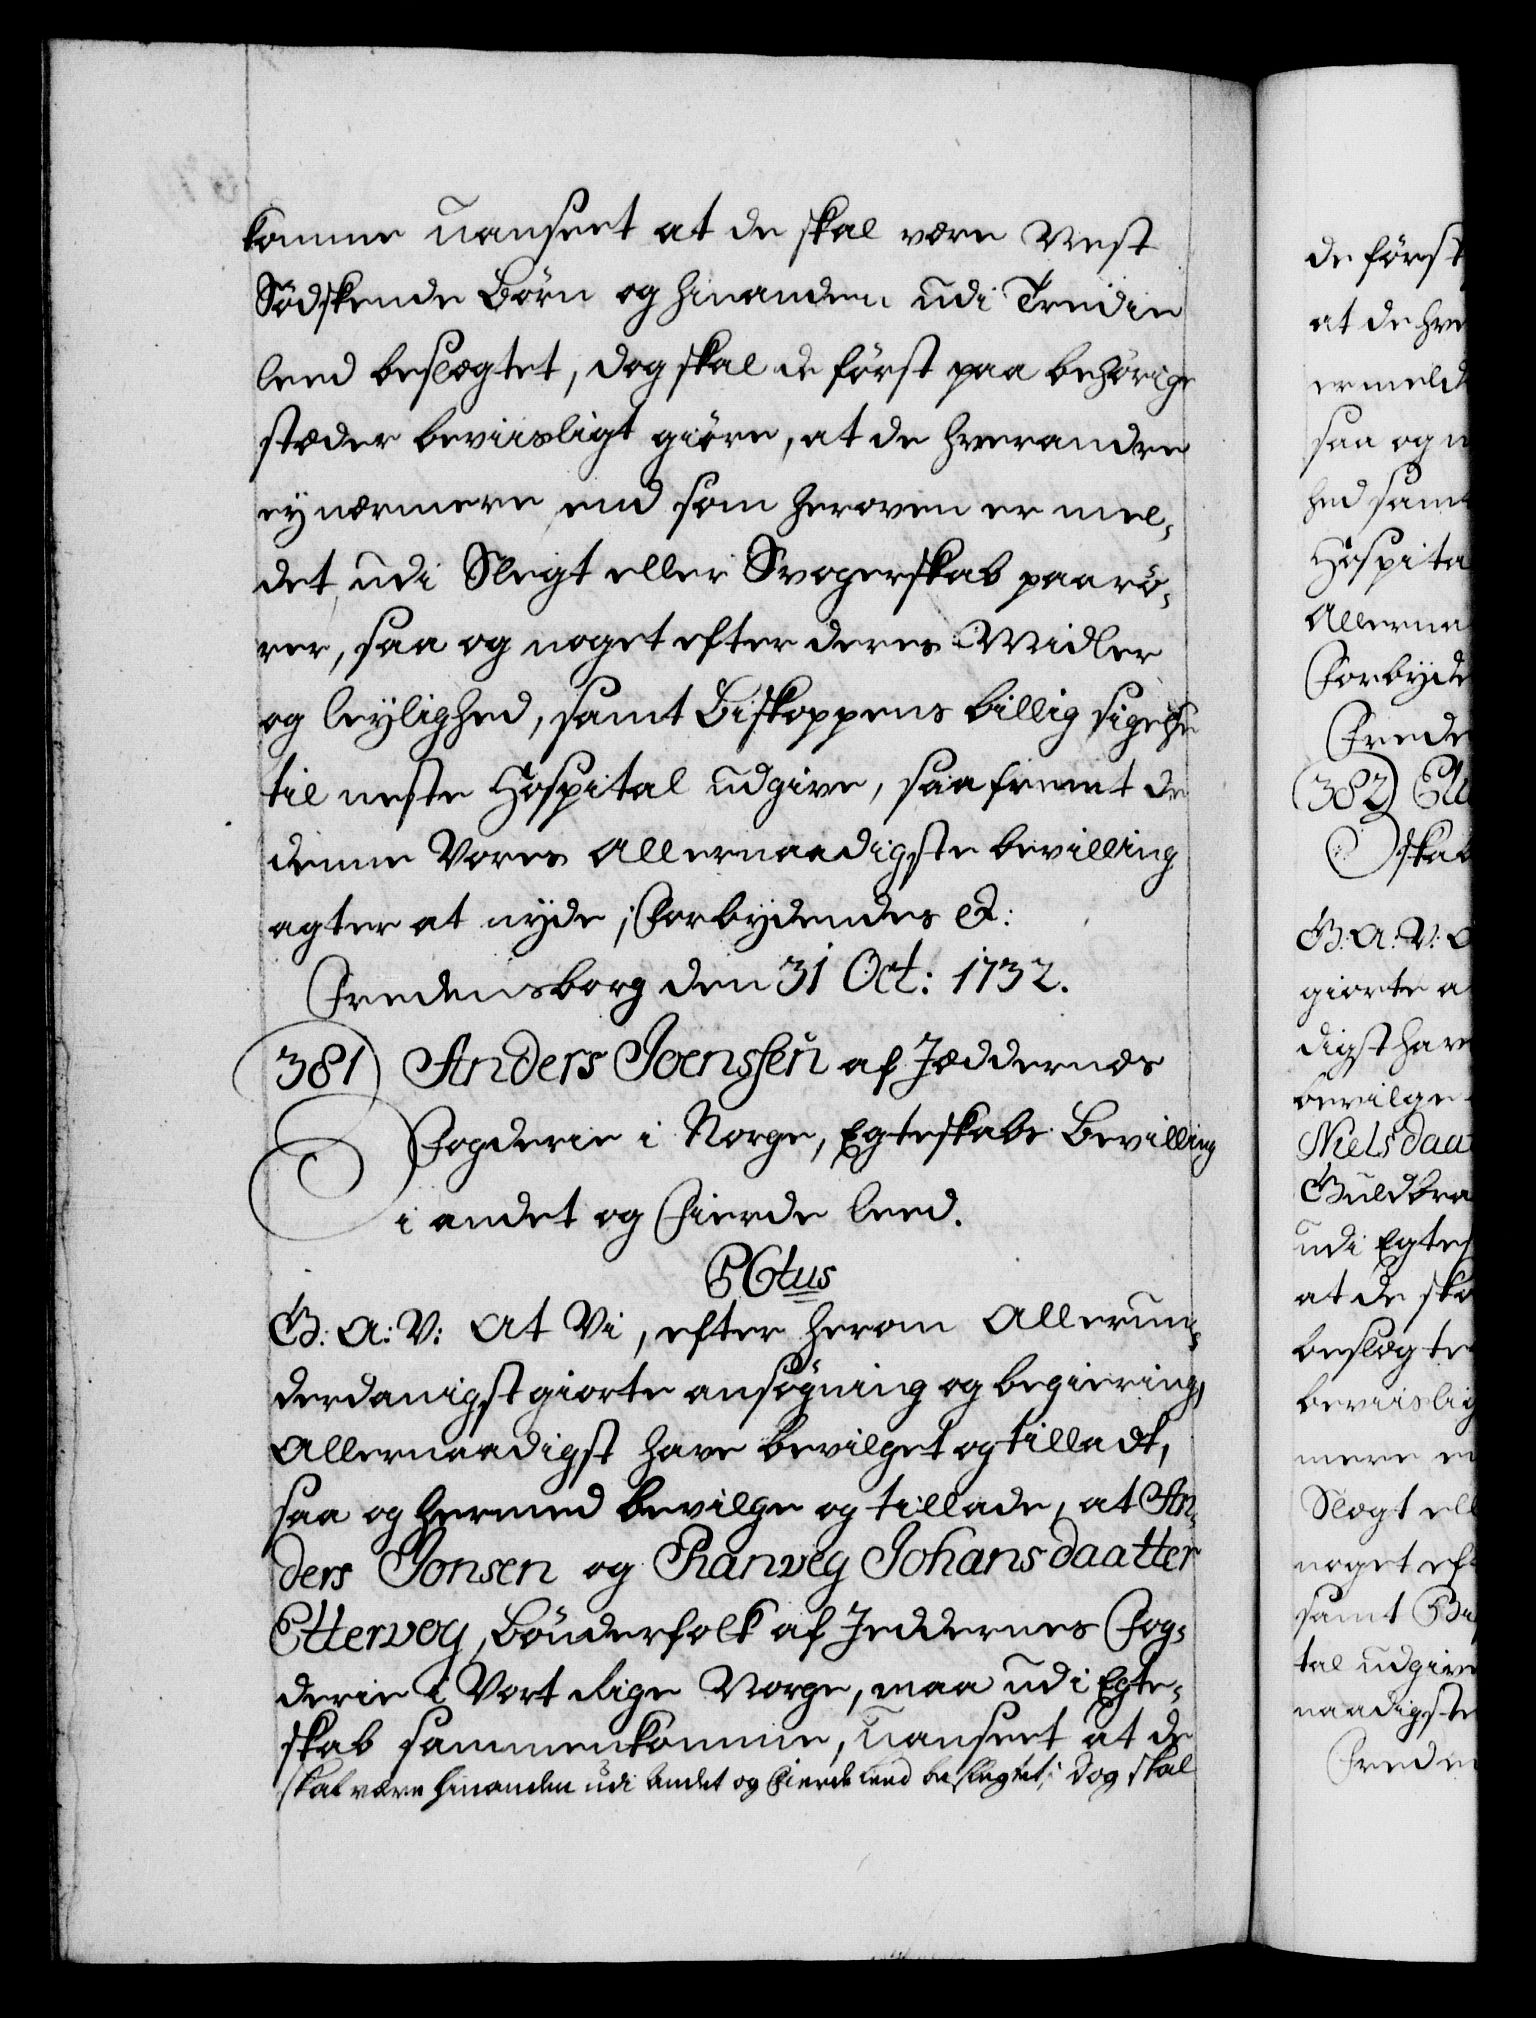 komme uanseet at de skal være Nest
Södskende Börn og hinanden udi Tredie
leed beslægtet, dog skal de först paa behörige
stæder beviisligt giöre, at de hverandre
ey nærmere end som heroven er mel,
det, udi Slegt eller Svogerskab paarö,
rer, saa og noget efter deres Midler
og leylighed, samt Biskoppens billig sigelse
til neste Hospital udgive, saafremt de
denne Vores Allernaadigste bevilling
agter at nyde, Forbydendes &:
Fredensborg den 31 Oct: 1732.
381) Anders Joenssen af Jæddernæs
Fogderie i Norge, Egteskabs Bevilling
i andet og Fierde leed.
G: A: V: At Vi, efter herom Allerun,
derdanigst giorte ansögning og begiering,
Allernaadigst have bevilget og tilladt,
saa og hermed bevilge og tillade, at An,
ders Jonsen og Ranveg Johansdaatter
Ettervog, Bönderfolk af Jeddernes Fog,
derie i Vort Rige Norge, maa udi Egte,
skab sammenkomme, uanseet at de
skal være hinanden udi Andet og Fierde leed beslegtet; Dog skal
de först
at de hve
ermeld
saa og n
hed samt
Hospita
Allerna
Forbyde
Frede
382)
skab
G: A: V:
giorte a
digst have
bevilge
Niels daa
Guldbra
udi Egtes
at de ska
beslægte
beviislig
mere en
Slægt ell
noget eft
samt Bis
tal udgive
naadigste
Freden